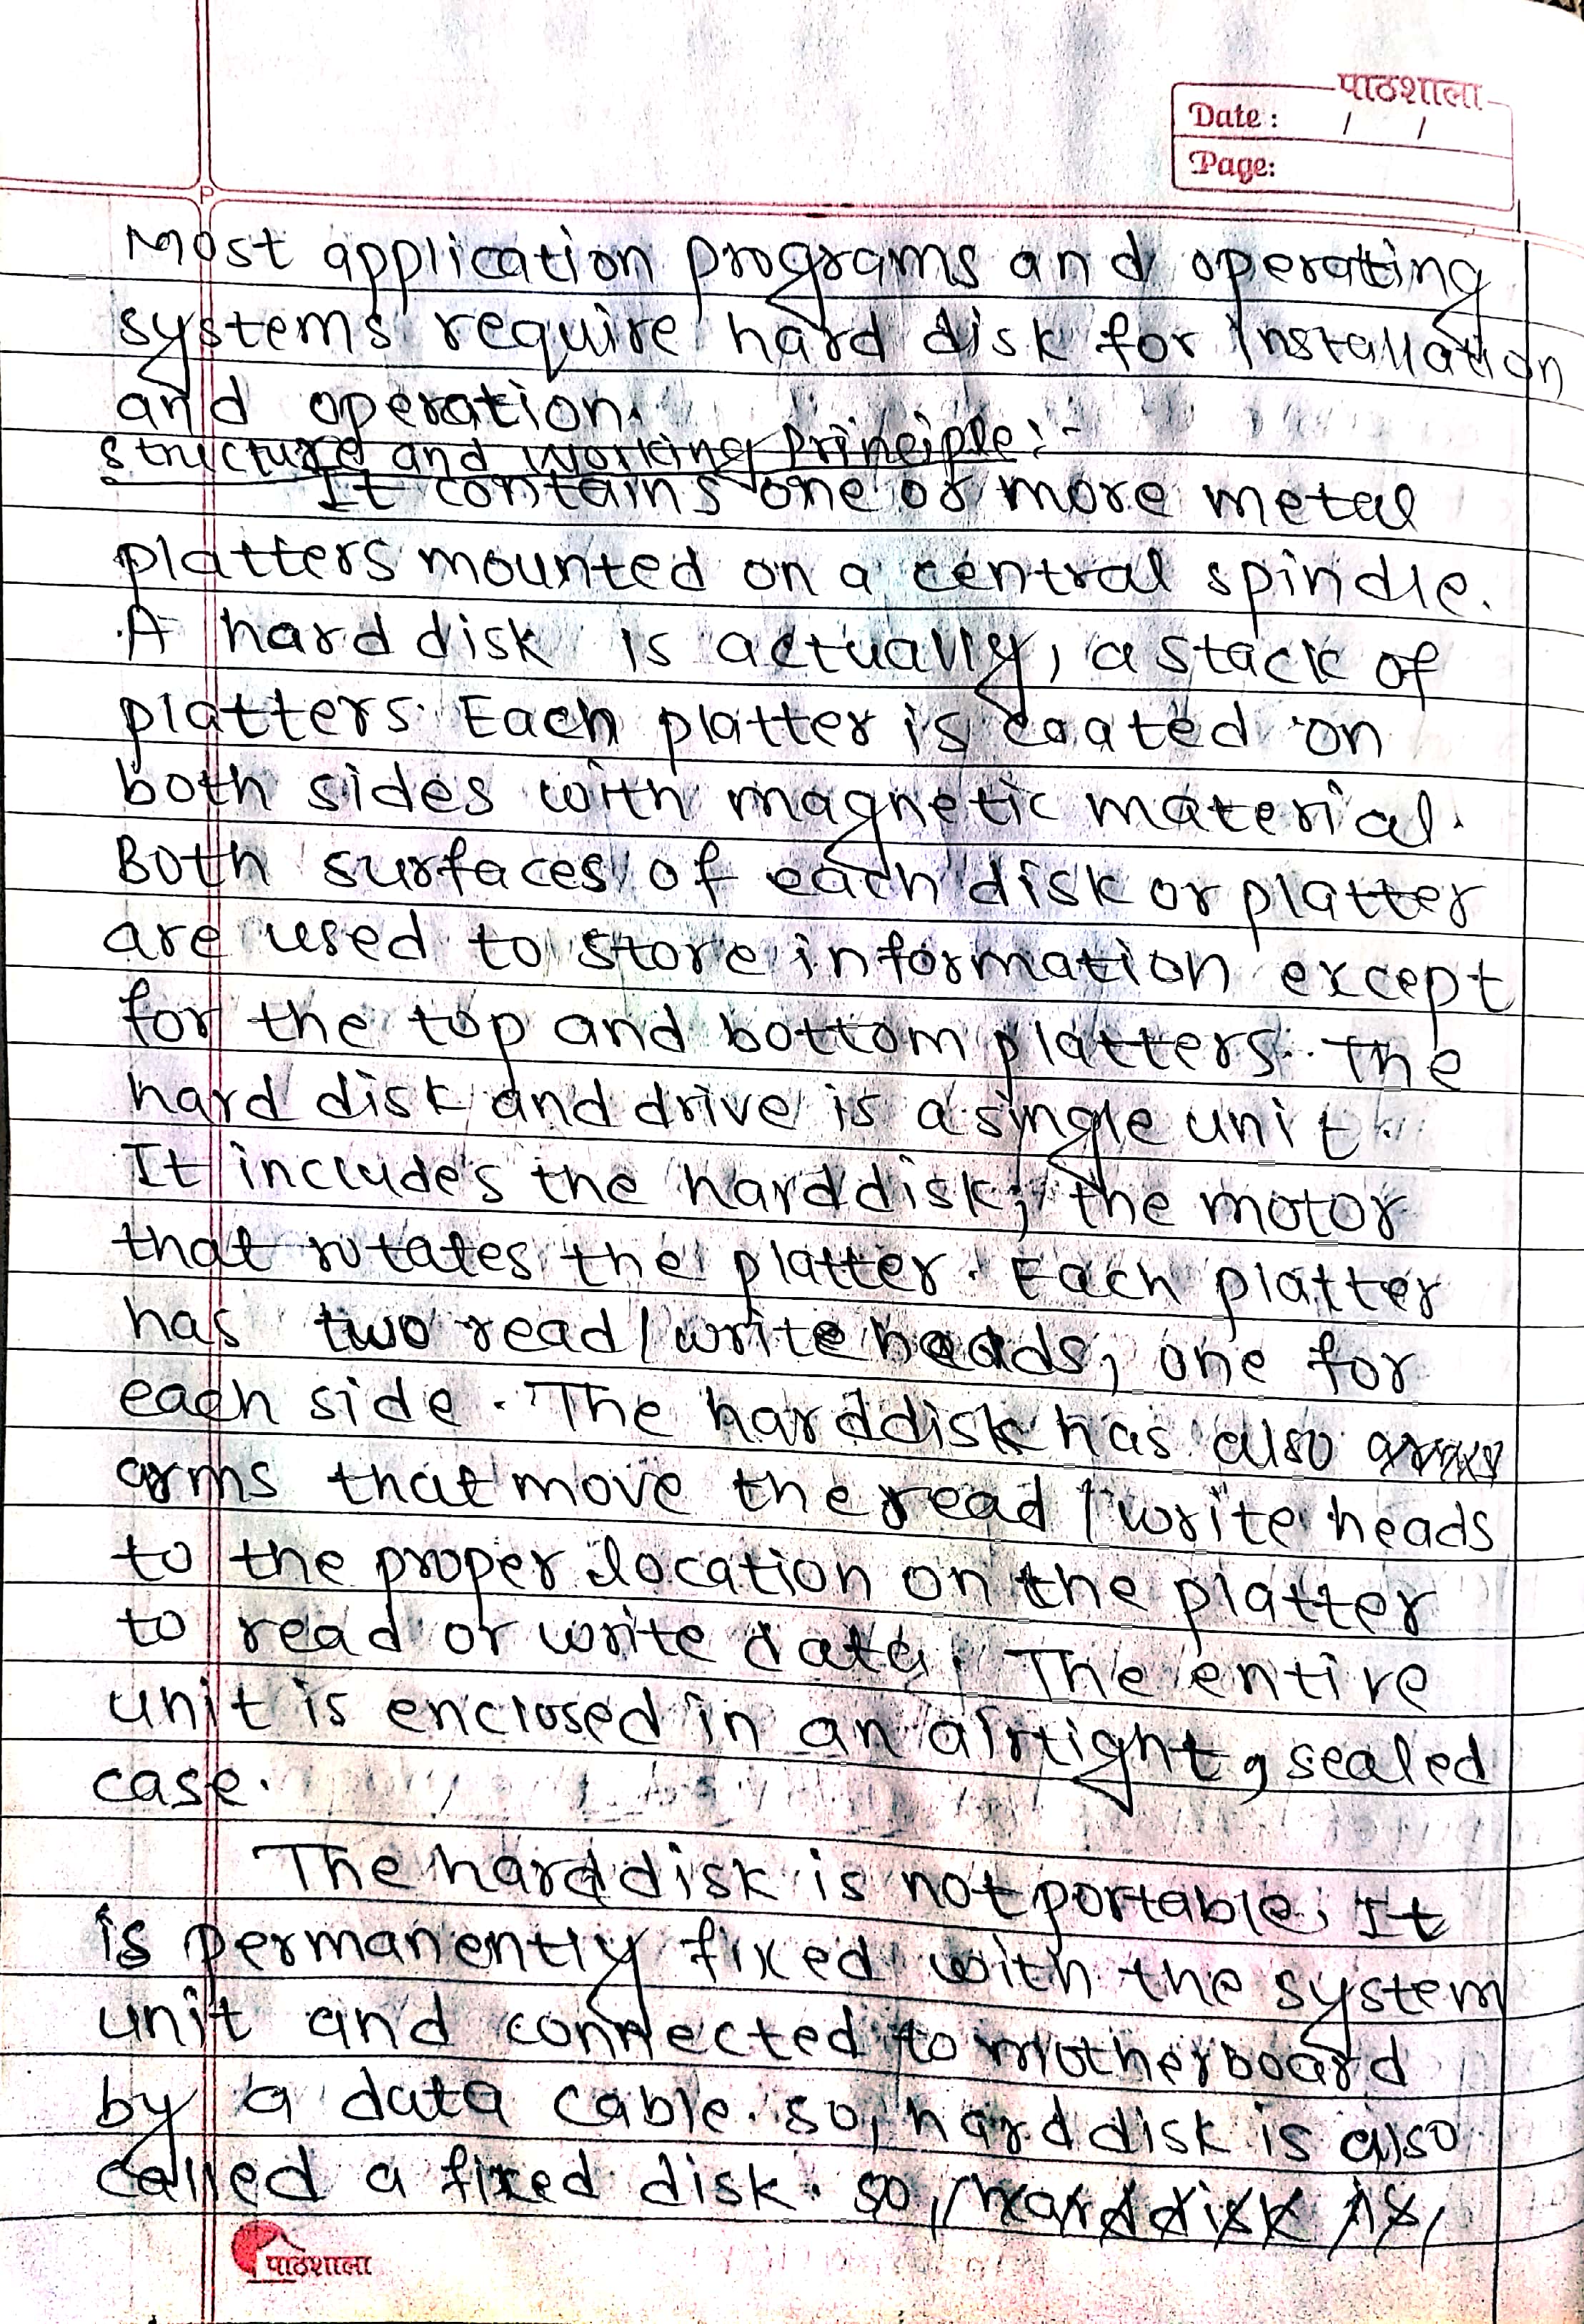 पाठशाला
Date : / /
Page:
P
Most application programs and operating
systems require hard disk for installation
and operation.
structure and working principle:-
It contains one or more metal
platters mounted on a central spindle.
A hard disk is actually, a stack of
platters. Each platter is coated on
both sides with magnetic material.
Both surfaces of each disk or platter
are used to store information except
for the top and bottom platters. The
hard disk and drive is a single unit.
It includes the hard disk, the motor
that rotates the platter. Each platter
has two read/write heads, one for
each side. The harddisk has also
arms that move the read/write heads
to the proper location on the platter
to read or write data. The entire
unit is enclosed in an airtight, sealed
case.
The harddisk is not portable. It
is permanently fixed with the system
unit and connected to motherboard
by a data cable. so, hard disk is also
called a fixed disk. so, harddisk is,
पाठशाला